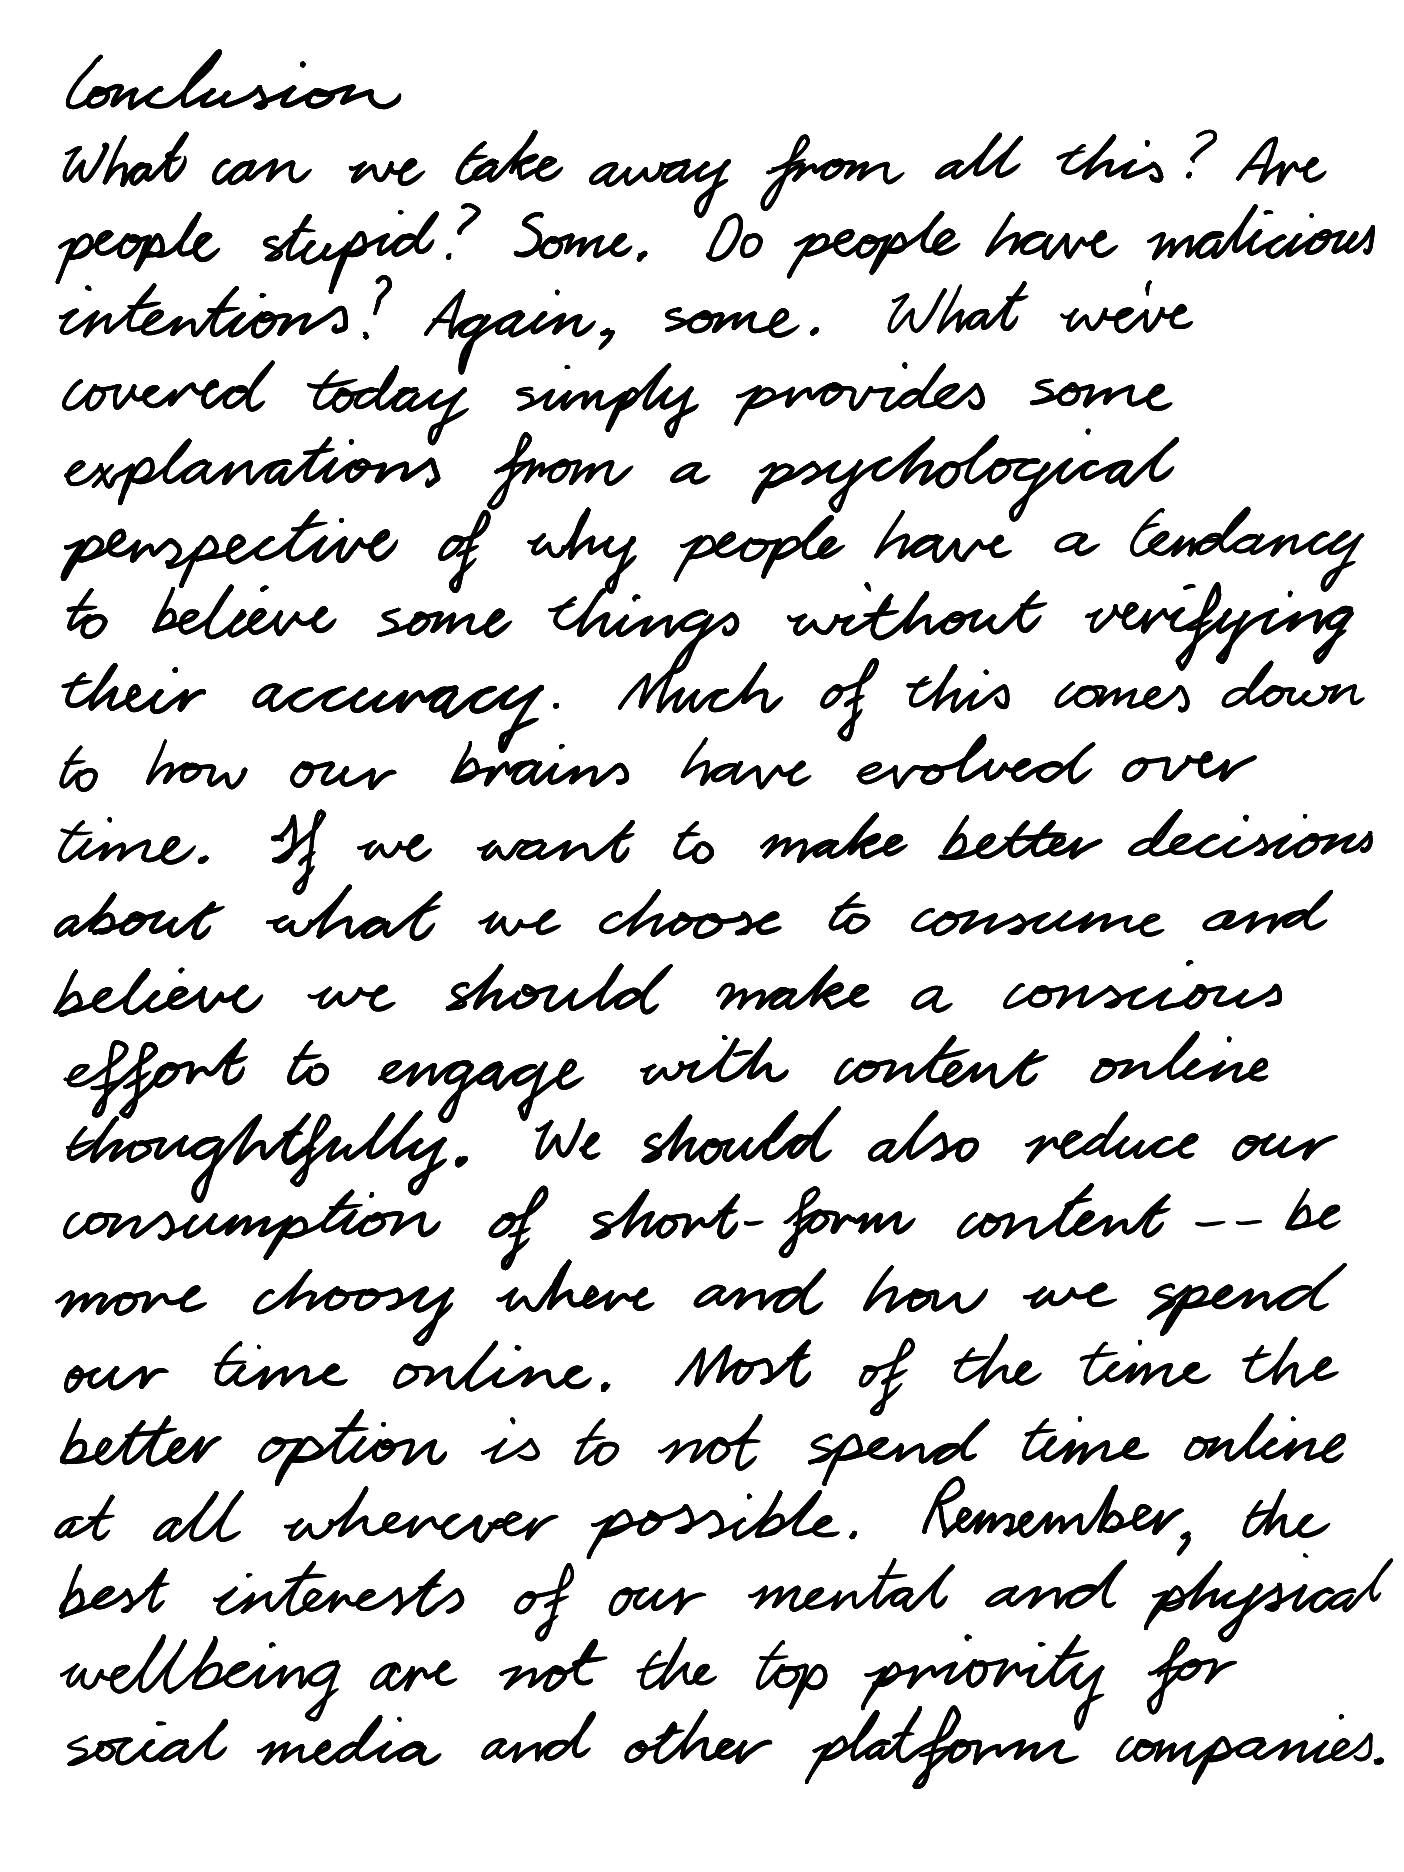 Conclusion
What can we take away from all this? Are
people stupid? Some. Do people have malicious
intentions? Again, some. What we've
covered today simply provides some
explanations from a psychological
perspective of why people have a tendancy
to believe some things without verifying
their accuracy. Much of this comes down
to how our brains have evolved over
time. If we want to make better decisions
about what we choose to consume and
believe we should make a conscious
effort to engage with content online
thoughtfully. We should also reduce our
consumption of short-form content -- be
more choosy where and how we spend
our time online. Most of the time the
better option is to not spend time online
at all wherever possible. Remember, the
best interests of our mental and physical
wellbeing are not the top priority for
social media and other platform companies.